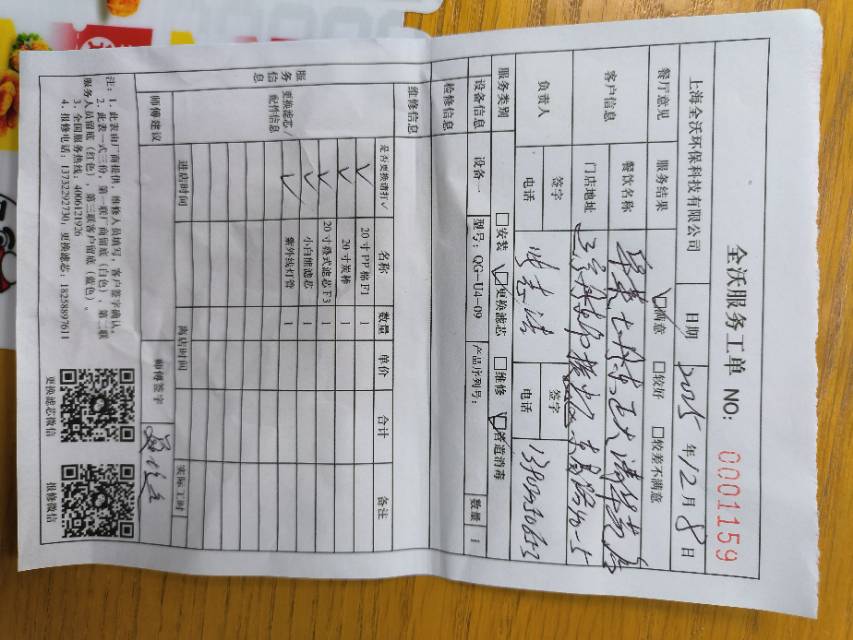 全沃服务工单 NO: 0001159
上海全沃环保科技有限公司 日期 2025 年 12 月 8 日
餐厅意见 服务结果 ☑满意 □较好 □较差不满意
客户信息 餐饮名称
门店地址
负责人 签字 签字
电话 电话
服务类别 □安装 ☑更换滤芯 □维修 ☑管道消毒
设备信息 设备一 型号: QG-U4-09 产品序列号: 数量 1
检修信息
维修信息
服务信息
更换滤芯/配件信息
是否更换请打✓ 名称 数量 单价 合计 备注
✓ 20寸PP棉F1 1
✓ 20寸炭棒 1
✓ 20寸叠式滤芯F3 1
✓ 小白熊滤芯 1
✓ 紫外线灯管 1
进店时间 离店时间 实际工时
师傅建议 师傅签字
注: 1、此表由厂商提供, 维修人员填写, 客户签字确认。
2、此表一式三份, 第一联厂商留底 (白色), 第二联
服务人员留底 (红色), 第三联客户留底 (蓝色)。
3、全国服务热线: 4006121926
4、报修电话: 13732292730, 更换滤芯: 18258897611
更换滤芯微信 报修微信